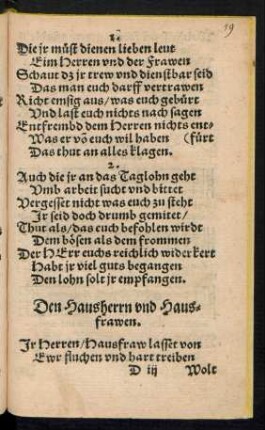 19
1.
Die jr müst dienen lieben leut
Eim Herren vnd der Frawen
Schaut dz jr trew vnd dienstbar seid
Das man euch darff vertrawen
Richt emsig aus/ was euch gebürt
Vnd last euch nichts nach sagen
Entfrembd dem Herren nichts ent-
Was er võ euch wil haben (fürt
Das thut an alles klagen.
2.
Auch die jr an das Taglohn geht
Vmb arbeit sucht vnd bittet
Vergesset nicht was euch zu steht
Jr seid doch drumb gemitet/
Thut als/ das euch befohlen wirdt
Dem bösen als dem frommen
Der HErr euchs reichlich widerkert
Habt jr viel guts begangen
Den lohn solt jr empfangen.
Den Hausherrn vnd Haus-
frawen.
Jr Herren/ Hausfraw lasset von
Ewr fluchen vnd hart treiben
D iij Wolt